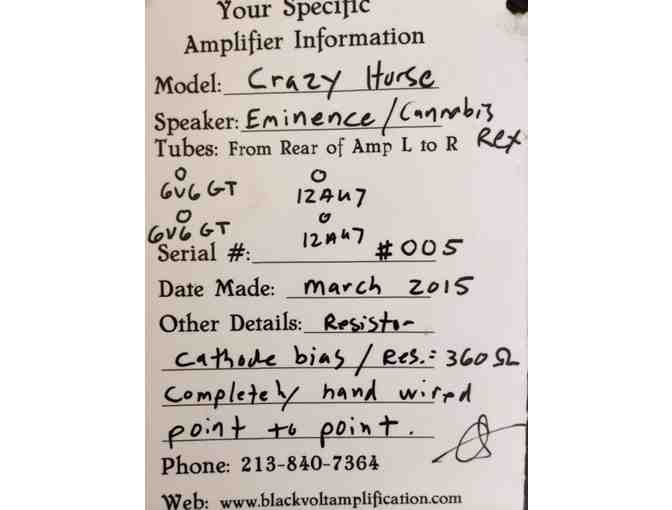 Your Specific
Amplifier Information
Model: Crazy Horse
Speaker: Eminence / Cannabis
Rex
Tubes: From Rear of Amp L to R
6V6 GT 12AU7
6V6 GT 12AU7
Serial #: #005
Date Made: March 2015
Other Details: Resistor
Cathode bias / Res.: 360 Ω
Completely hand wired
point to point.
Phone: 213-840-7364
Web: www.blackvoltamplification.com